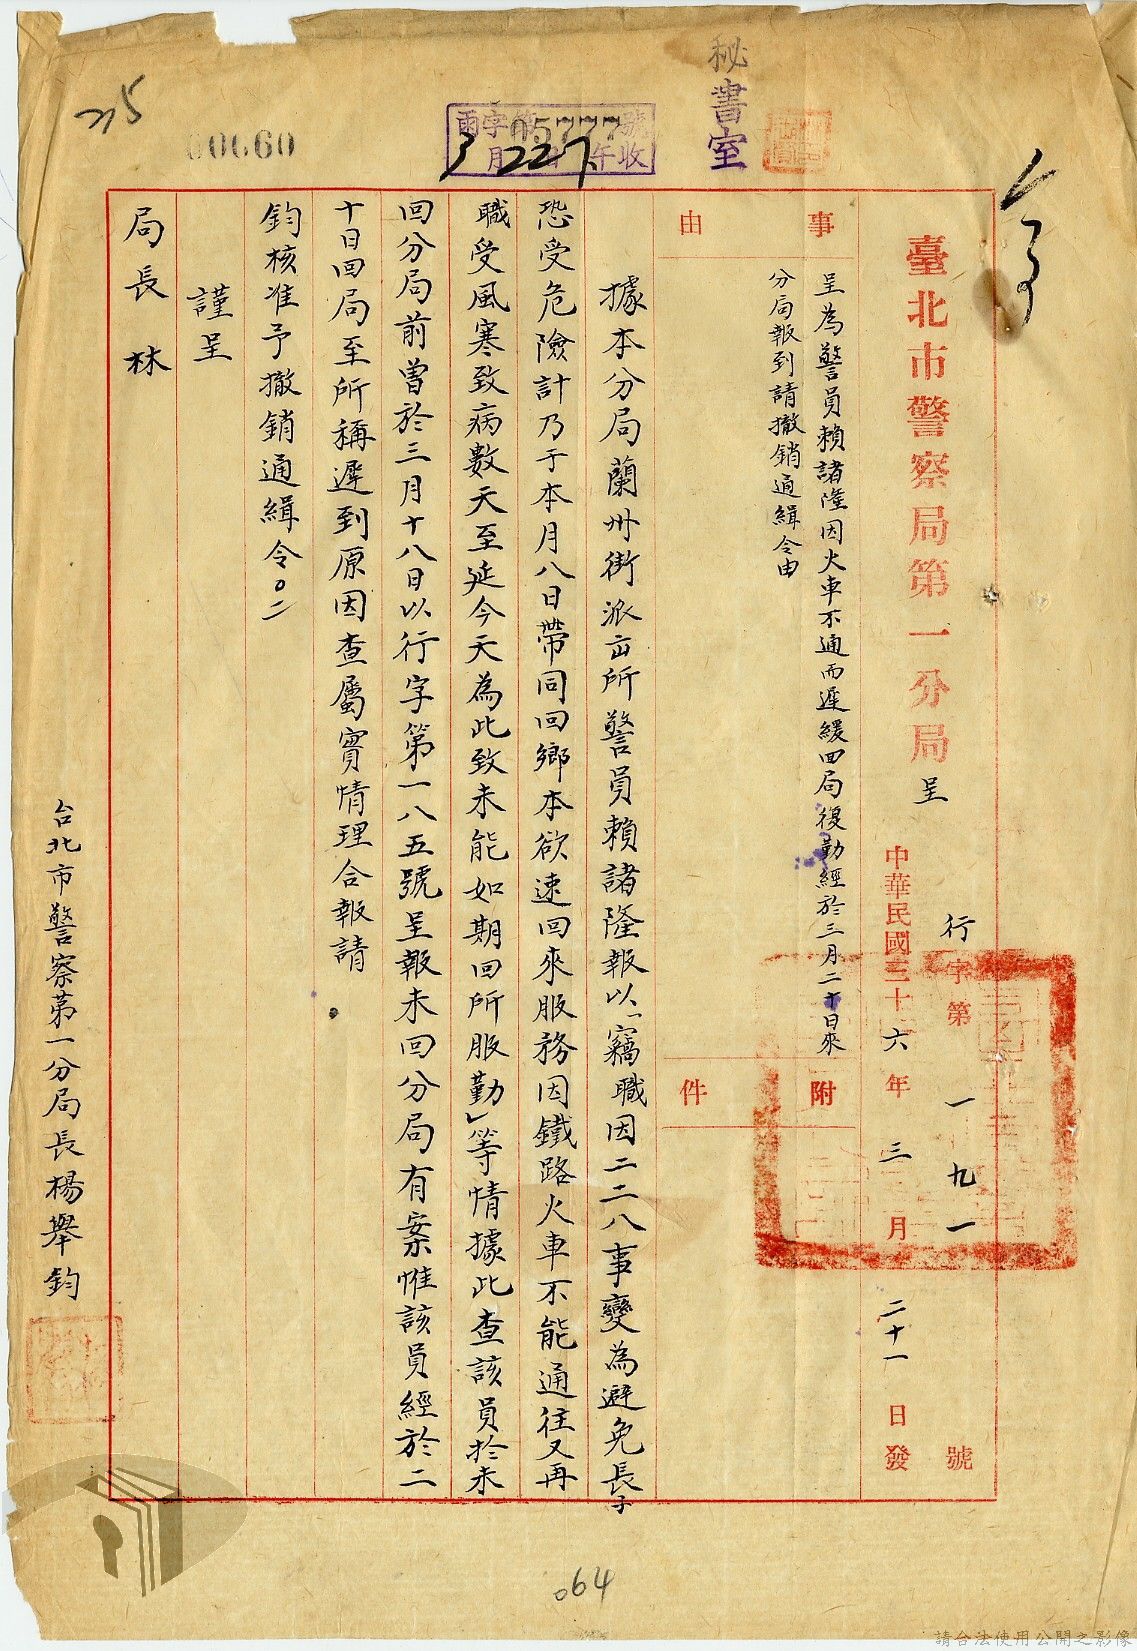 秘書室
雨字第05777號
3月22日 午收
00060
臺北市警察局第一分局呈
行字第一九一號
中華民國三十六年三月二十一日發
事由
呈為警員賴諸隆因火車不通而遲緩回局復勤經於三月二十日來
分局報到請撤銷通緝令由
附件
據本分局蘭州街派出所警員賴諸隆報以「竊職因二二八事變為避免長子
恐受危險計乃于本月八日帶同回鄉本欲速回來服務因鐵路火車不能通往又再
職受風寒致病數天至延今天為此致未能如期回所服勤」等情據此查該員於未
回分局前曾於三月十八日以行字第一八五號呈報未回分局有案惟該員經於二
十日回局至所稱遲到原因查屬實情理合報請
鈞核准予撤銷通緝令。
謹呈
局長 林
台北市警察第一分局長楊舉鈞
064
請合法使用公開之影像